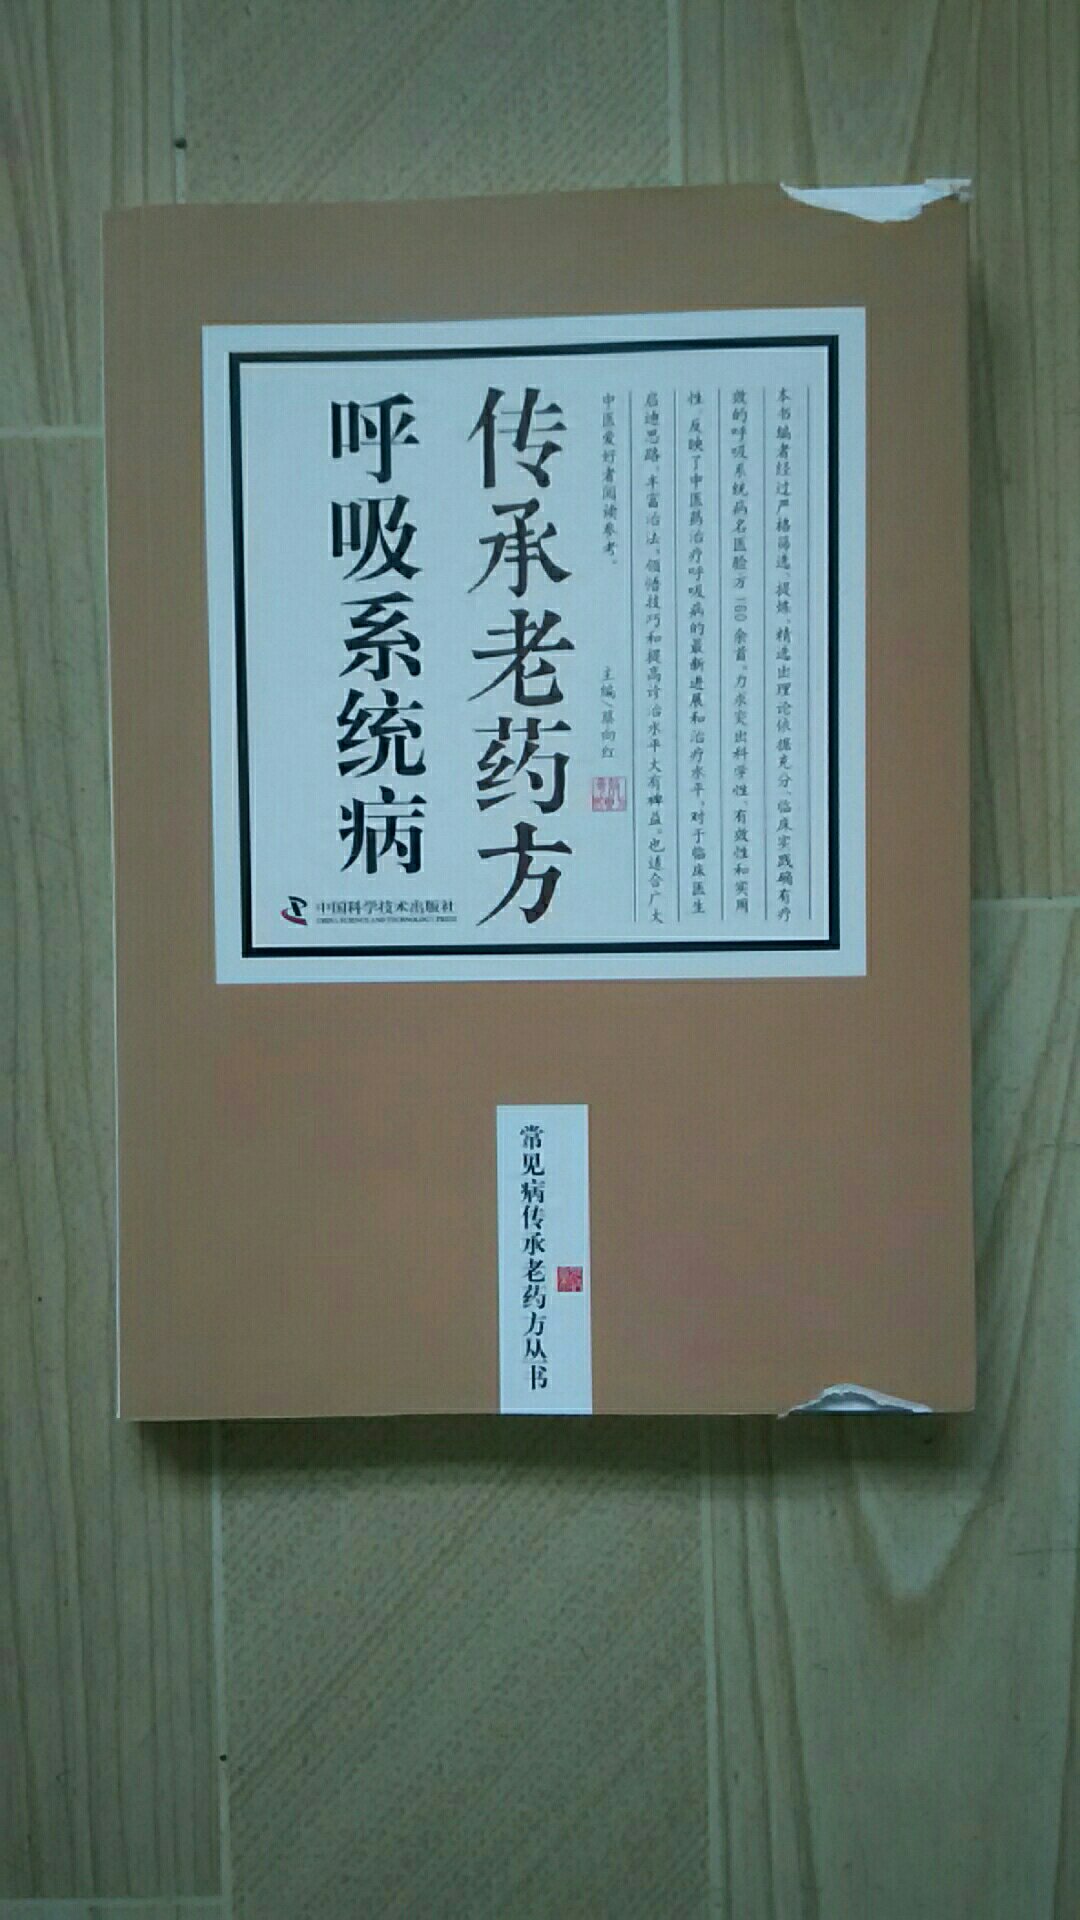 本书编者经过严格筛选、提炼,精选出理论依据充分、临床实践确有疗
效的呼吸系统病名医验方160余首。力求突出科学性、有效性和实用
性,反映了中医药治疗呼吸病的最新进展和治疗水平,对于临床医生
启迪思路、丰富治法、领悟技巧和提高诊治水平大有裨益。也适合广大
中医爱好者阅读参考。
主编/蔡向红
传承老药方
呼吸系统病
中国科学技术出版社
CHINA SCIENCE AND TECHNOLOGY PRESS
常见病传承老药方丛书